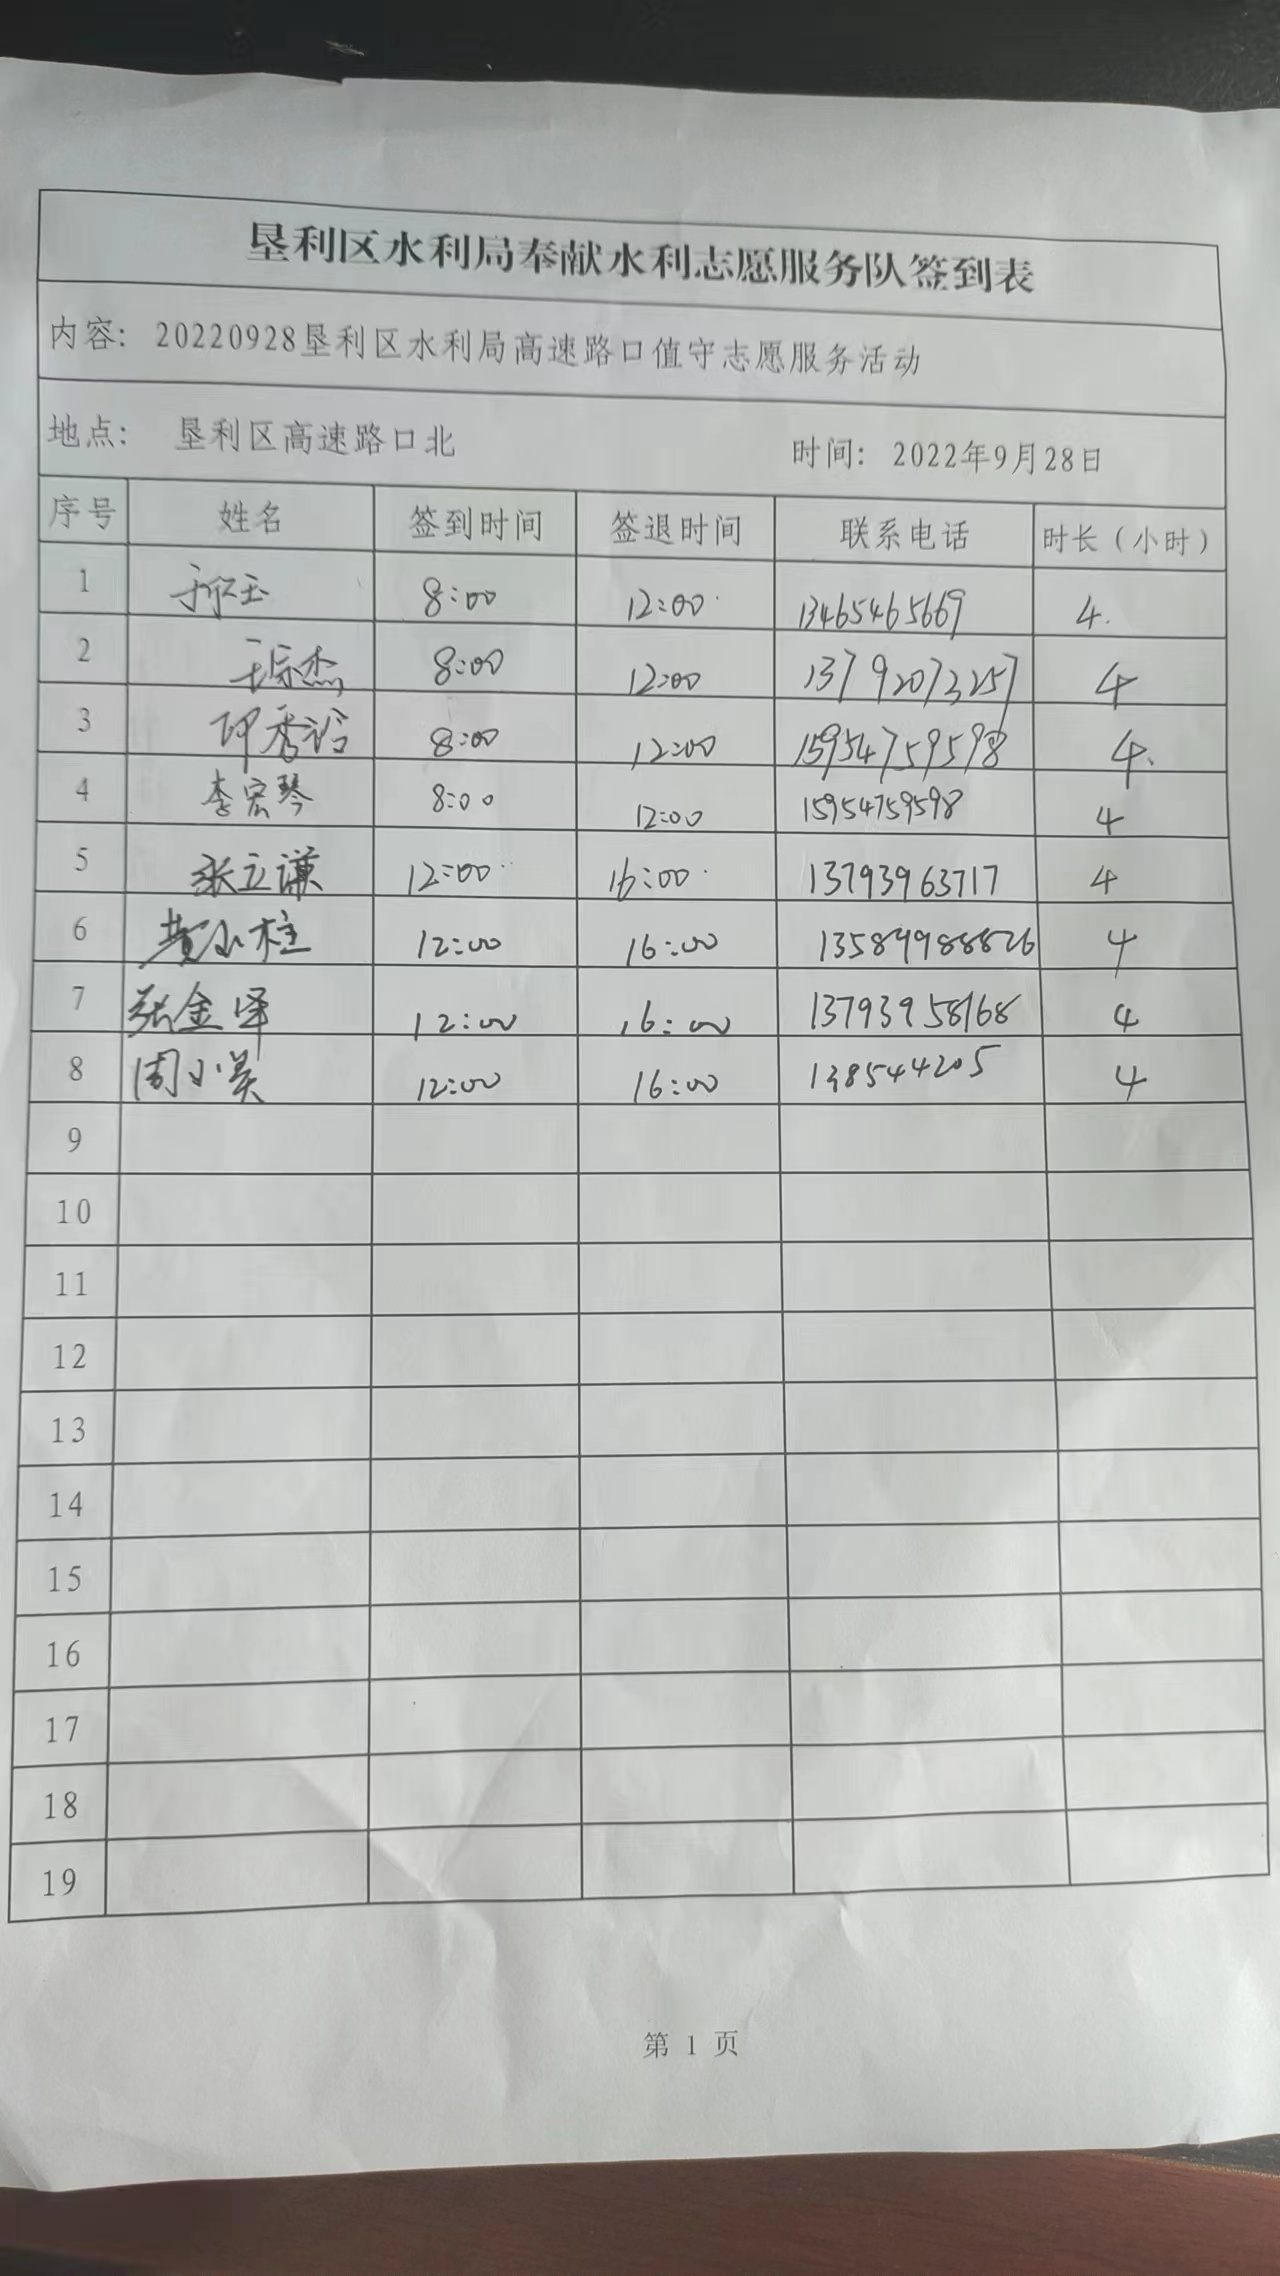 垦利区水利局奉献水利志愿服务队签到表
内容: 20220928垦利区水利局高速路口值守志愿服务活动
地点: 垦利区高速路口北 时间: 2022年9月28日
序号 姓名 签到时间 签退时间 联系电话 时长(小时)
1 8:00 12:00 13465465669 4.
2 王宗杰 8:00 12:00 13792073257 4
3 8:00 12:00 15954759598 4.
4 李宏琴 8:00 12:00 15954759598 4
5 张立谦 12:00 16:00 13793963717 4
6 黄小柱 12:00 16:00 13589988826 4
7 张金泽 12:00 16:00 13793958168 4
8 周小美 12:00 16:00 138544205 4
9
10
11
12
13
14
15
16
17
18
19
第 1 页